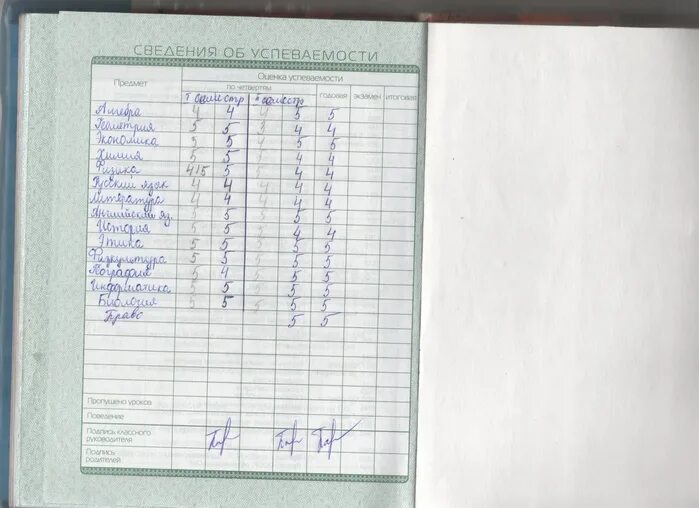 СВЕДЕНИЯ ОБ УСПЕВАЕМОСТИ
Предмет Оценка успеваемости
по четвертям годовая экзамен итоговая
I семестр II семестр
Алгебра 4 4 4 5 5
Геометрия 5 5 3 4 4
Экономика 3 5 4 5 5
Химия 5 5 5 4 4
Физика 4/5 5 5 4 4
Русский язык 4 4 4 4 4
Литература 4 4 4 4 4
Английский яз. 5 5 5 5 5
История 5 5 5 4 4
Этика 5 5 5 5 5
Физкультура 5 5 5 5 5
География 5 4 5 5 5
Информатика 5 5 5 5 5
Биология 5 5 5 5 5
Право 5 5
Пропущено уроков
Поведение
Подпись классного
руководителя
Подпись
родителей